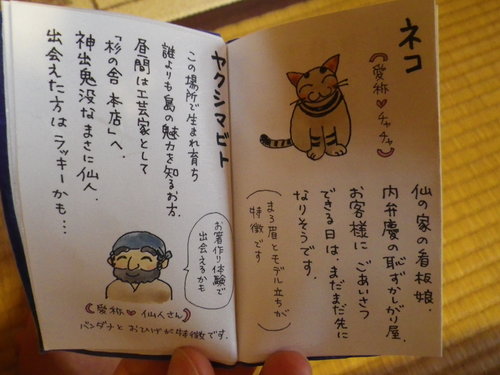 ネコ
愛称♥チャチャ
仙の家の看板娘.
内弁慶の恥ずかしがり屋.
お客様に ごあいさつ
できる日は、まだまだ先に
なりそうです。
(まろ眉とモデル立ちが
特徴です)
ヤクシマビト
この場所で生まれ育ち
誰よりも島の魅力を知るお方.
昼間は工芸家として
「杉の舎 本店」へ.
神出鬼没なまさに仙人.
出会えた方はラッキーかも…
お箸作り体験で
出会えるかも
愛称♥仙人さん
バンダナと おひげが特徴です.